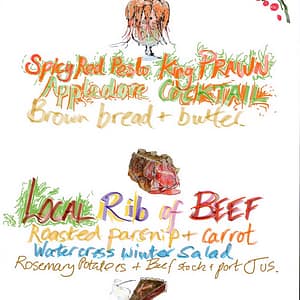 Spicy Red Pesto King PRAWN
Appledore COCKTAIL
Brown bread + butter
LOCAL Rib of BEEF
Roasted parsnip + carrot
Watercress Winter Salad
Rosemary Potatoes + Beef stock + port JUS.